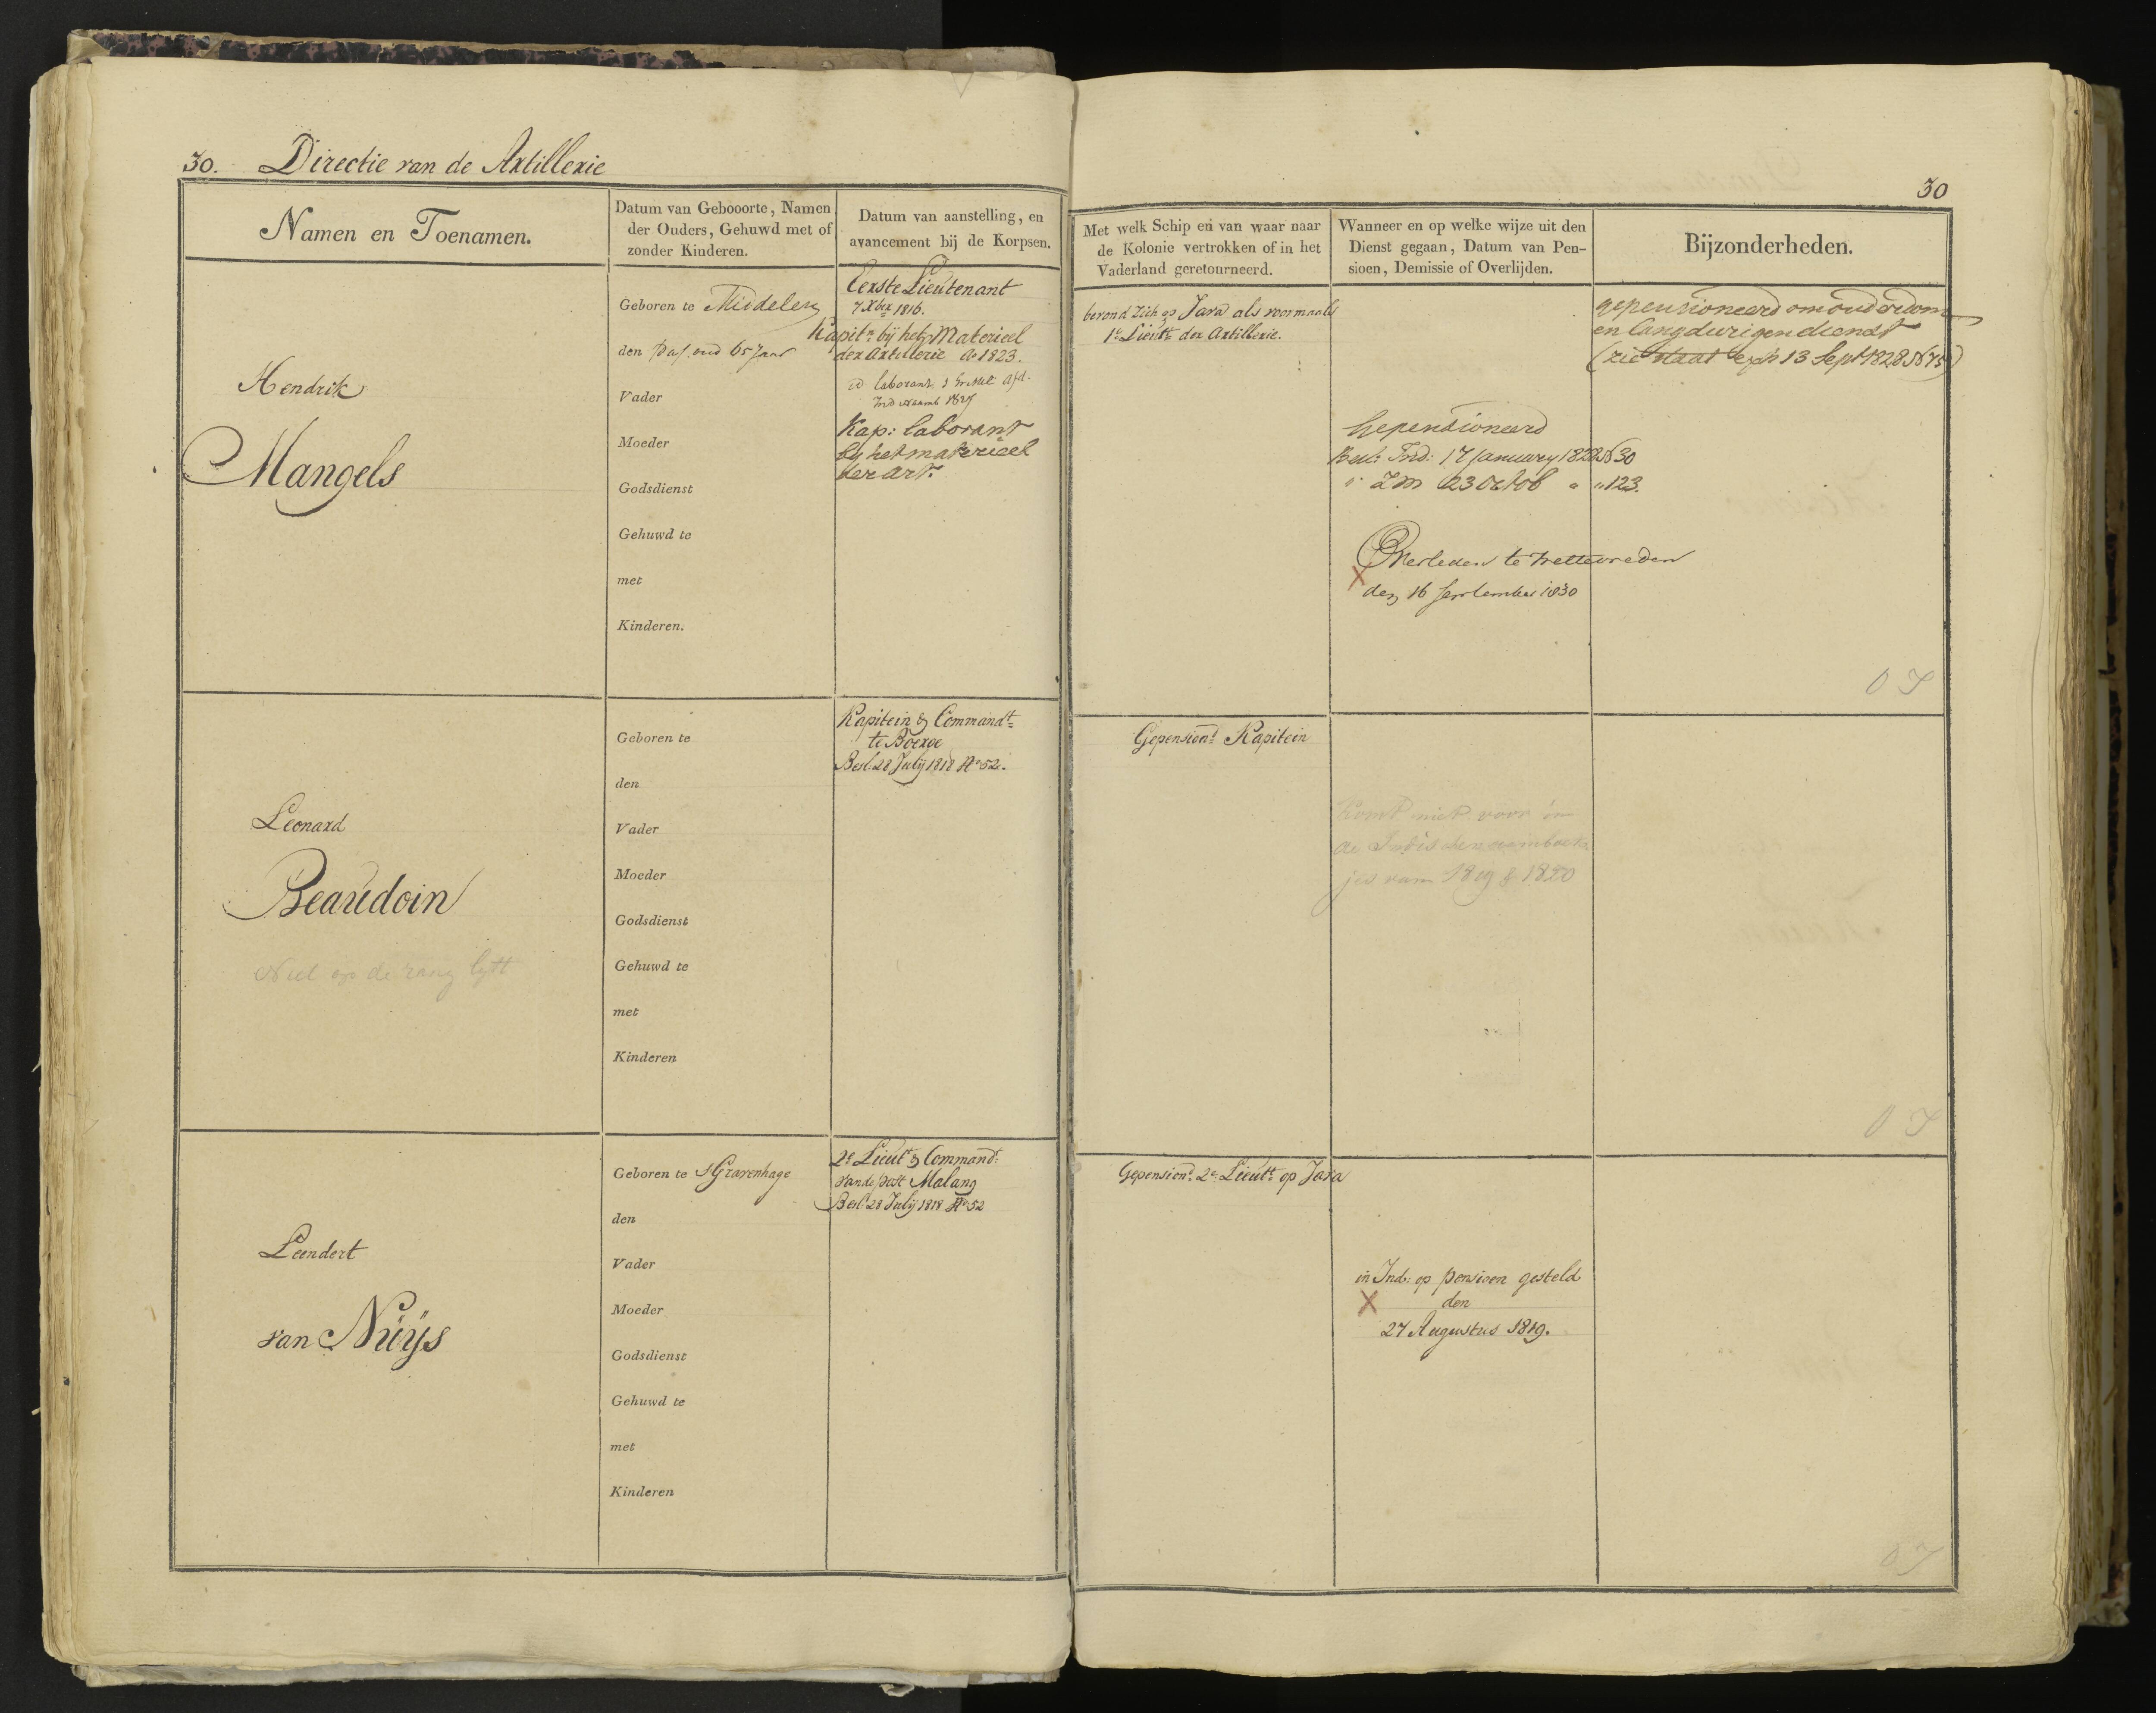 30. Directie van de Artillerie
30
Namen en Toenamen.
Datum van Gebooorte, Namen
der Ouders, Gehuwd met of
zonder Kinderen.
Datum van aanstelling, en
avancement bij de Korpsen.
Met welk Schip en van waar naar
de Kolonie vertrokken of in het
Vaderland geretourneerd.
Wanneer en op welke wijze uit den
Dienst gegaan, Datum van Pen-
sioen, Demissie of Overlijden.
Bijzonderheden.
Hendrik
Mangels
Geboren te Middelerz
den oud 65 Jaar
Vader
Moeder
Godsdienst
Gehuwd te
met
Kinderen.
Eerste Lieutenant
7 Xber 1816.
Kapitn bij het Materieel
der Artillerie Ao 1823.
laborant
Kap: laborant
by het materieel
der art:
bevond zich op Java als voormaals
1e Lieutt der Artillerie.
Gepensioneerd
Besl: Ind: 17 January 1828 No 30
" ZM 23 Octob " " 123.
Overleden te Weltevreden
X
den 16 September 1830
gepensioneerd om ouderdom
en langdurigen dienst
(zie staat exh 13 Sept 1828 No 75)
O I
Leonard
Beaudoin
Niet op de rang lyst
Geboren te
den
Vader
Moeder
Godsdienst
Gehuwd te
met
Kinderen
Kapitein & Commandt
te Boeroe
Besl: 28 July 1818 No 52.
Gepensiond Kapitein
Komt niet voor in
de Indische naamboek
jes van 1819 & 1820
O I
Leendert
van Nuijs
Geboren te s'Gravenhage
den
Vader
Moeder
Godsdienst
Gehuwd te
met
Kinderen
2e Lieutt & Command:
van de post Malang
Besl: 28 July 1818 No 52
Gepensiond 2e Lieutt op Java
in Ind: op pensioen gesteld
X den
27 Augustus 1819.
O I